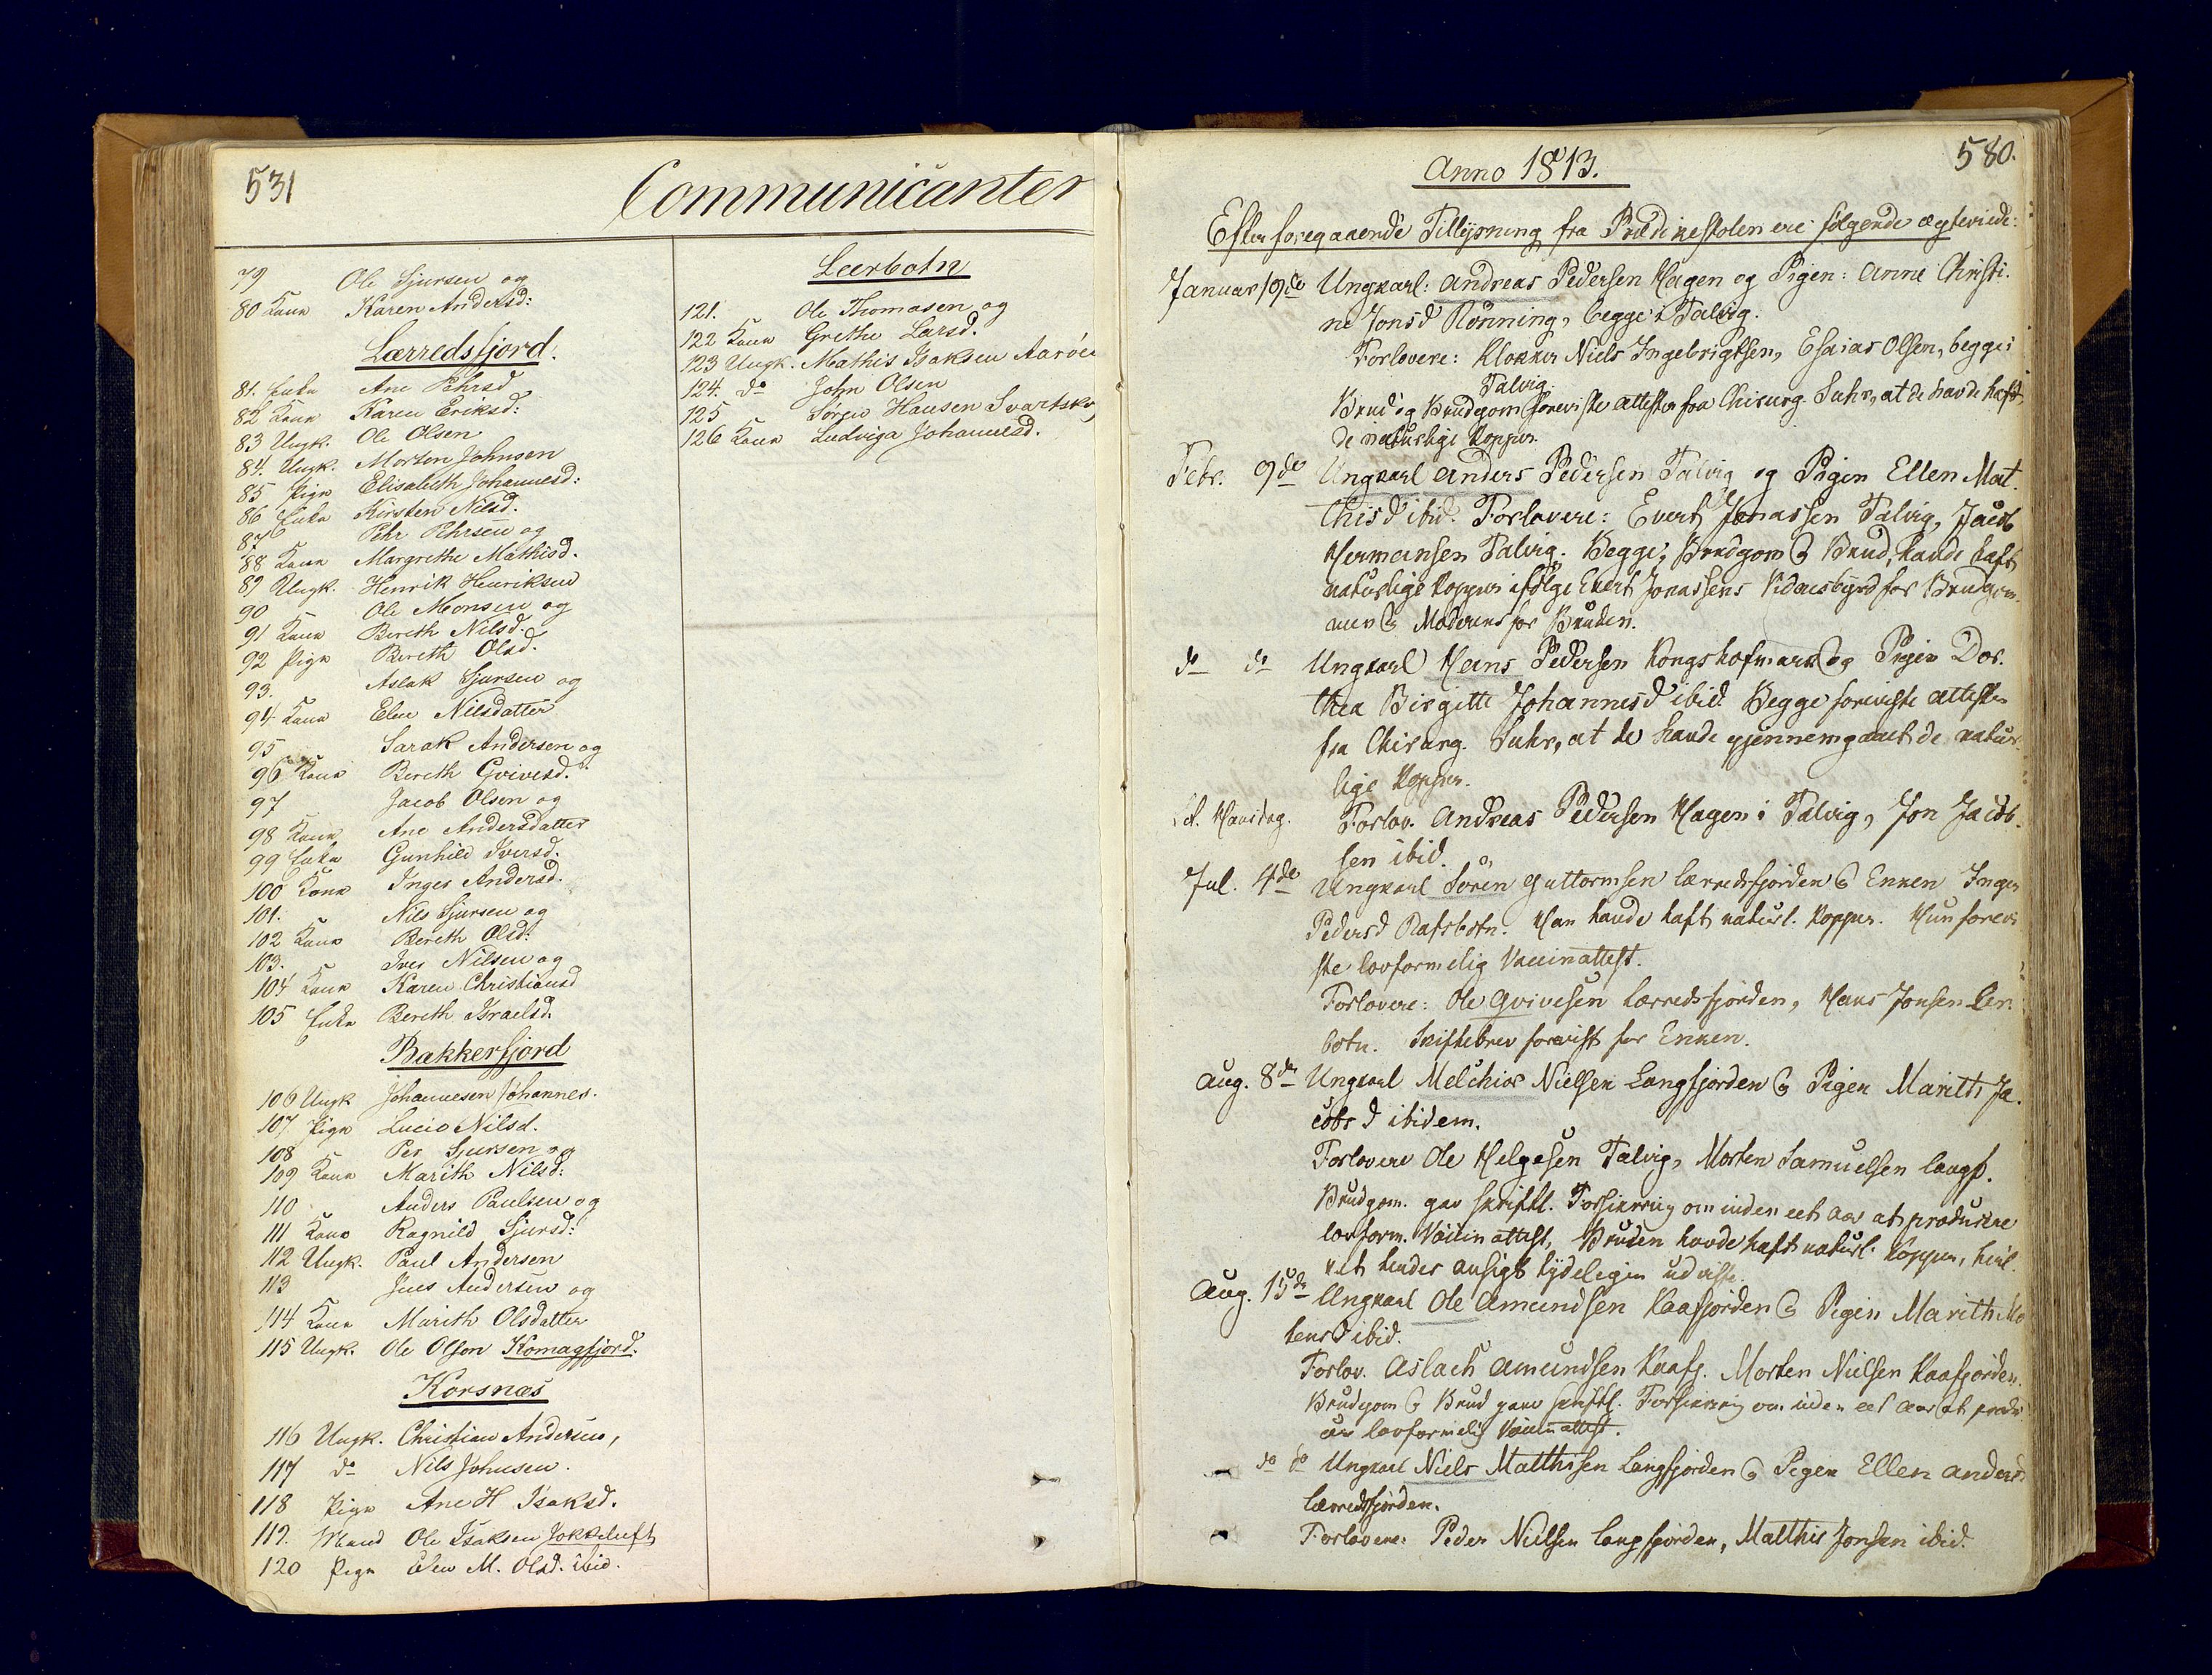 531
Communicanter
79 Ole Sjursen og
80 Kone Karen Andersd:
Lærredsfjord.
81. Enke Ane Pehrsd
82 Kone Karen Eriksd:
83 Ungk. Ole Olsen
84. Ungk. Morten Johnsen
85 Pige Elisabeth Johannesd:
86 Enke Kirsten Nilsd.
87 Pehr Pehrsen og
88 Kone Margrethe Mathisd.
89 Ungk. Henrik Henriksen
90 Ole Monsen og
91 Kone Bereth Nilsd.
92 Pige Bereth Olsd.
93. Aslak Sjursen og
94 Kone Elen Nilsdatter
95 Sarak Andersen og
96 Kone Bereth Gvivesd.
97 Jacob Olsen og
98 Kone Ane Andersdatter
99 Enke Gunhild Iversd.
100 Kone Inges Andersd.
101. Nils Sjursen og
102 Kone Bereth Olsd:
103. Iver Nilsen og
104 Kone Karen Christiansd
105 Enke Bereth Israelsd.
Bakkerfjord
106 Ungk Johannesen Johannes.
107 Pige Lucie Nilsd.
108 Per Sjursen og
109 Kone Marith Nilsd:
110 Anders Paulsen og
111 Kone Ragnild Sjursd:
112 Ungk. Paul Andersen
113 Jens Andersen og
114 Kone Marith Olsdatter
115 Ungk. Ole Olsen Komagfjord.
Korsnæs
116 Ungk. Christian Andersen,
117 do Nils Johnsen.
118 Pige Ane H Isaksd.
119. Mand Ole Isaksen Jokkeluft
120 Pige Elen M. Olsd. ibid.
Leerbotn
121. Ole Thomasen og
122 Kone Grethe Larsd.
123 Ungk. Mathis Isaksen Aarøen
124. do John Olsen
125 Søren Hansen Svartskr
126 Kone Ludviga Johannesd.
580.
Anno 1813.
Efter foregaaende Tillysning fra Prædikestolen ere følgende ægteviede:
Januar 19de Ungkarl: Andreas Pedersen Hagen og Pigen: Anne Christi.
ne Jonsd Rønning, begge i Talvig.
Forlovere: Klokker Niels Ingebrigtsen, Esaias Olsen, begge i
Talvig.
Brud og Brudgom foreviste Attester fra Chirurg Suhr, at de havde haft
de naturlige Kopper.
Febr. 9de Ungkarl Anders Pedersen Talvig og Pigen Ellen Mat.
thisd ibid. Forlovere: Evert Jonassen Talvig, Jacob
Hermansen Talvig. Begge, Brudgom & Brud, havde haft
naturlige Kopper ifølge Evert Jonassens Vidnesbyrd for Brudgom.
men & Moderens for Bruden.
do do Ungkarl Hans Pedersen Kongshofmark og Pigen Dor.
thea Birgitte Johannesd ibid. Begge foreviste Attester
fra Chirurg. Suhr, at de havde gjennemgaaet de natur.
lige Kopper.
Forlov. Andreas Pedersen Hagen i Talvig, Jon Jacob.
sen ibid.
Jul. 4de Ungkarl Søren Guttormsen Lærredsfjorden & Enken Inger
Pedersd Rafsbotn. Han havde haft naturl. Kopper. Hun forevi
ste lovformelig Vaccinattest.
Forlovere: Ole Gvivesen Lærredsfjorden, Hans Jonsen Ler.
botn. Skiftebrev forevist for Enken.
Aug. 8de Ungkarl Melchior Nielsen Langfjorden & Pigen Marith Ja.
cobsd ibidem.
Forlovere Ole Helgesen Talvig, Morten Samuelsen Langf.
Brudgom. gav skriftl. Forsikring om inden eet Aar at producere
lovform. Vaccinattest, Bruden havde haft naturl. Kopper, hvil.
ket hendes Ansigt tydeligen udviste.
Aug. 15de Ungkarl Ole Amundsen Kaafjorden & Pigen Marith Mo
tensd ibid.
Forlov. Aslach Amundsen Kaafj. Morten Nielsen Kaafjorden.
Brudgom & Brud gave skriftl. Forsikring om inden eet Aar at produ
cere lovformelig Vaccinattest.
do do Ungkarl Niels Matthisen Langfjorden & Pigen Ellen Andersd
Lærredsfjorden.
Forlovere: Peder Nielsen Langfjorden, Matthis Jonsen ibid.